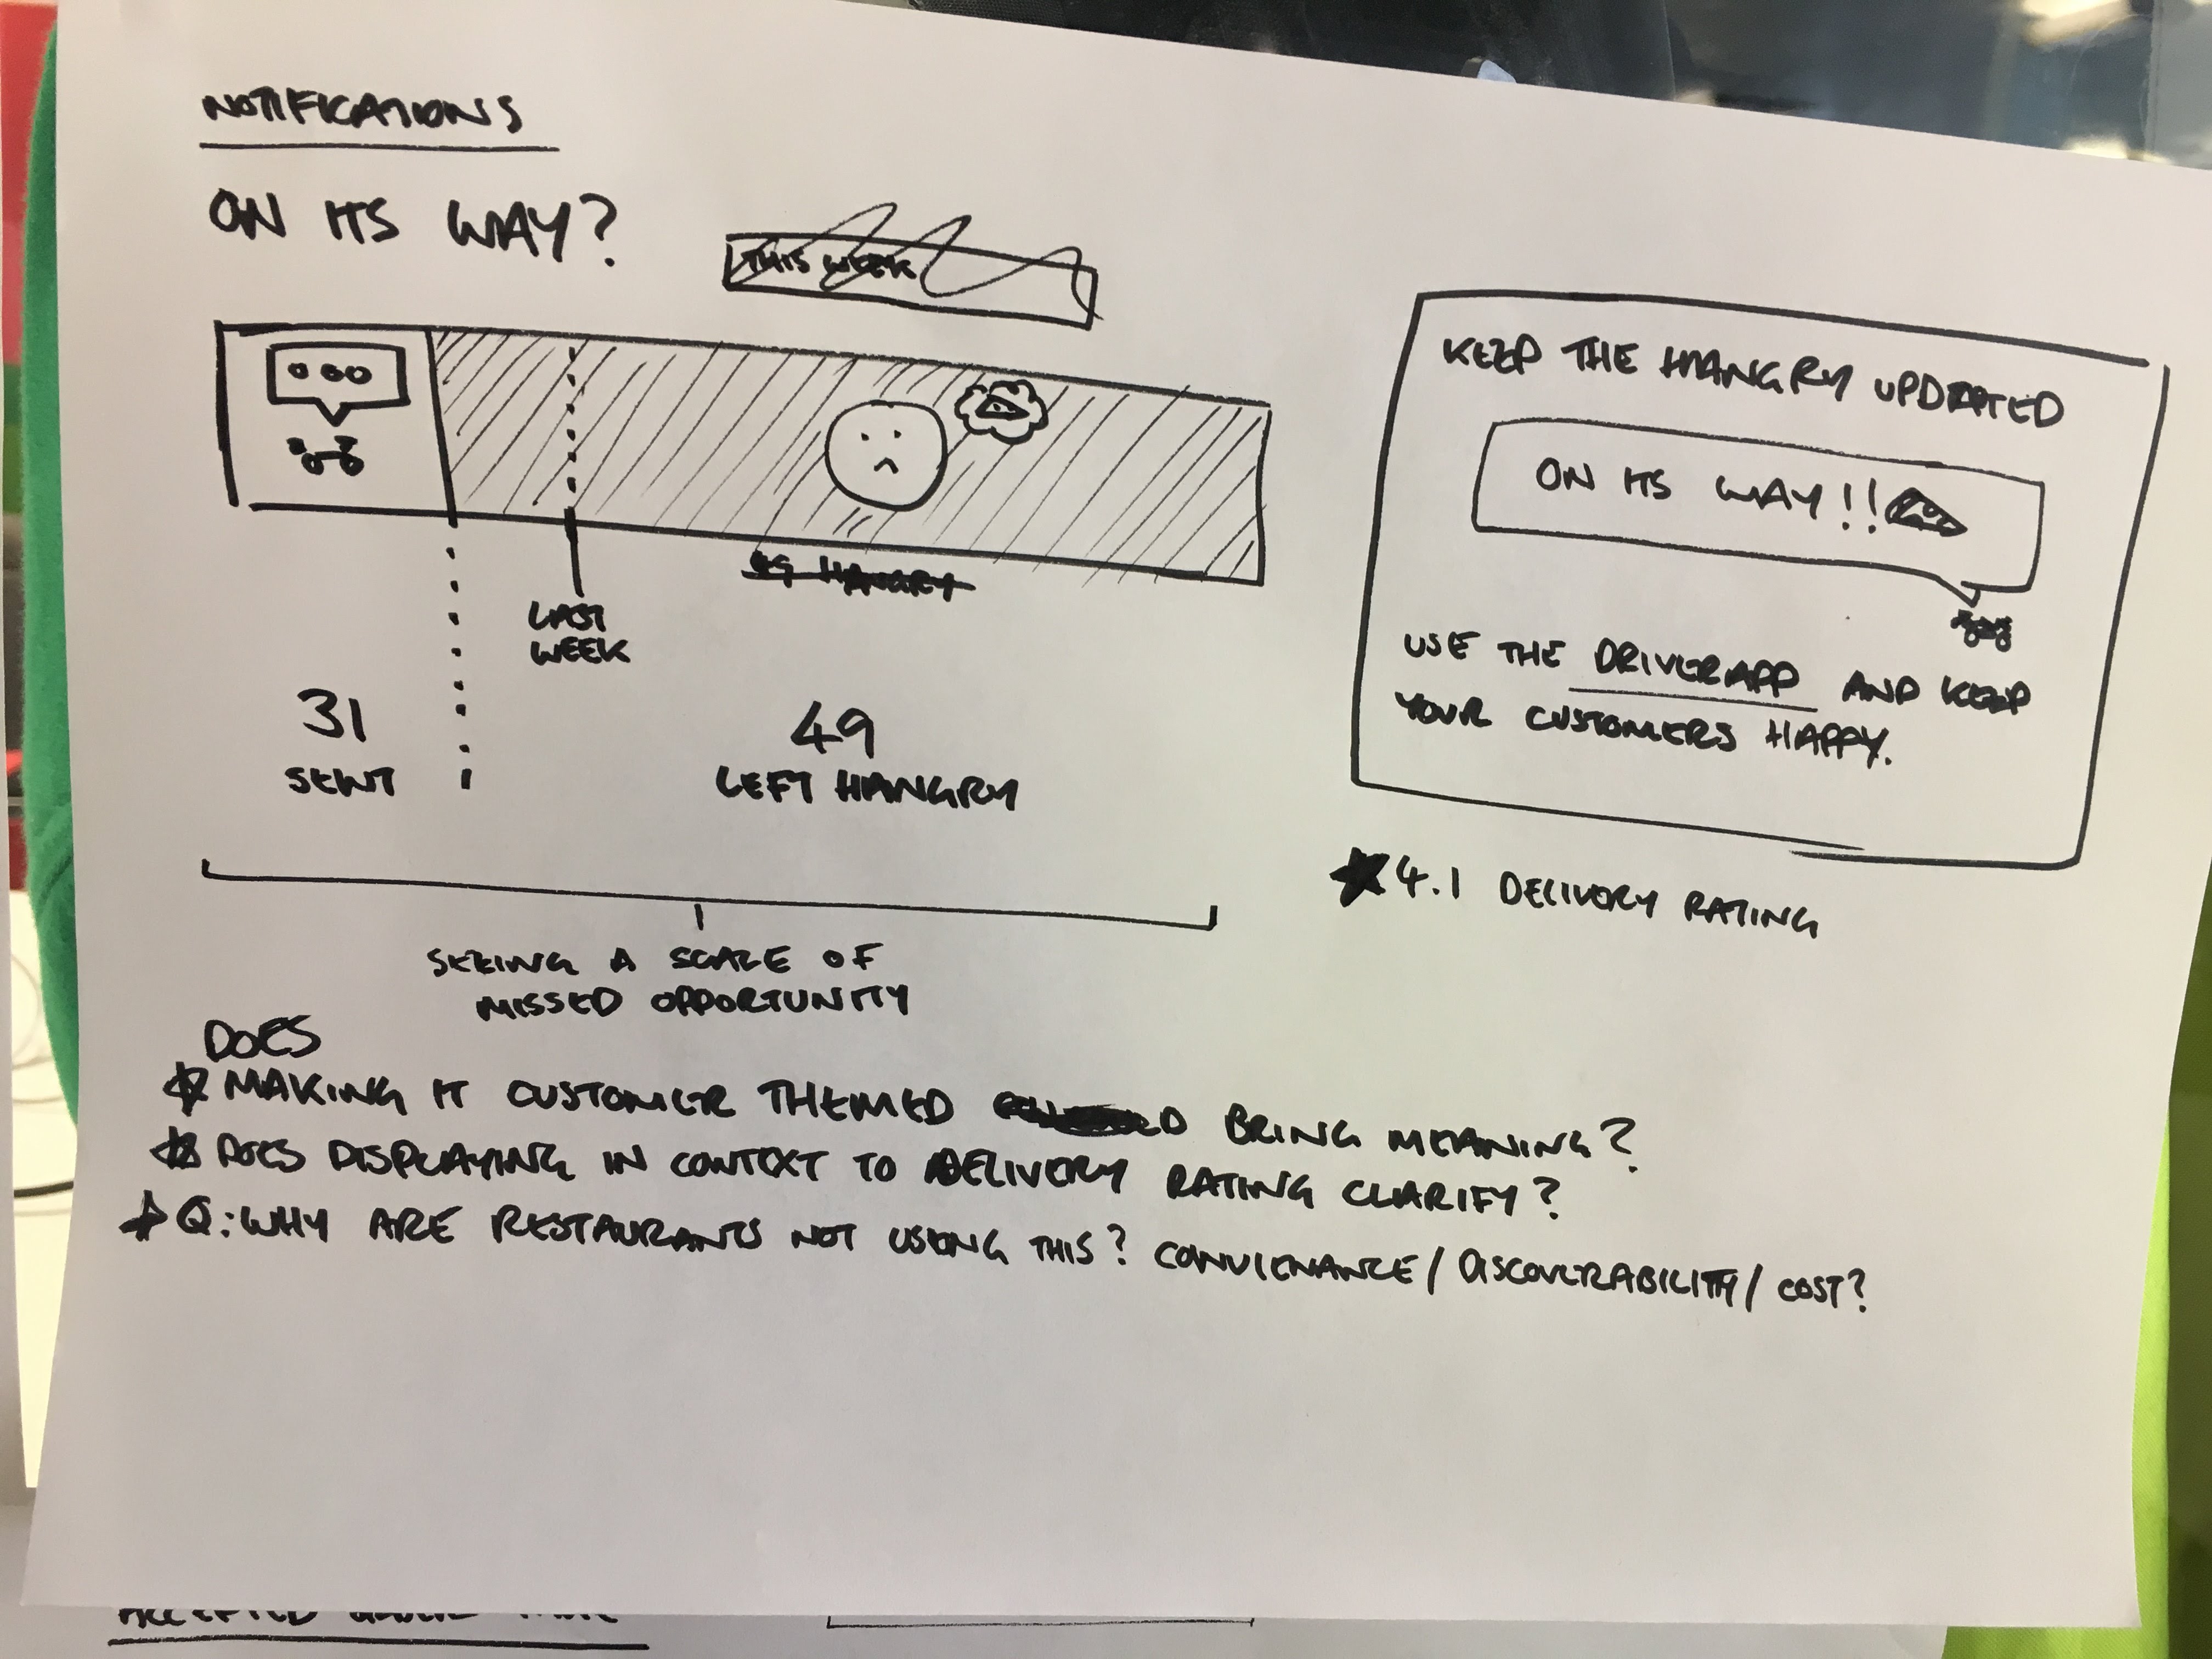 NOTIFICATIONS
ON ITS WAY?
THIS WEEK
49 HANGRY
LAST
WEEK
31
SENT
49
LEFT HANGRY
SEEING A SCALE OF
MISSED OPPORTUNITY
KEEP THE HANGRY UPDATED
ON ITS WAY!!
USE THE DRIVERAPP AND KEEP
YOUR CUSTOMERS HAPPY.
★4.1 DELIVERY RATING
DOES
★ MAKING IT CUSTOMER THEMED BRING MEANING?
★ DOES DISPLAYING IN CONTEXT TO DELIVERY RATING CLARIFY?
★ Q: WHY ARE RESTAURANTS NOT USING THIS? CONVIENANCE/DISCOVERABILITY/COST?
ACCEPTED